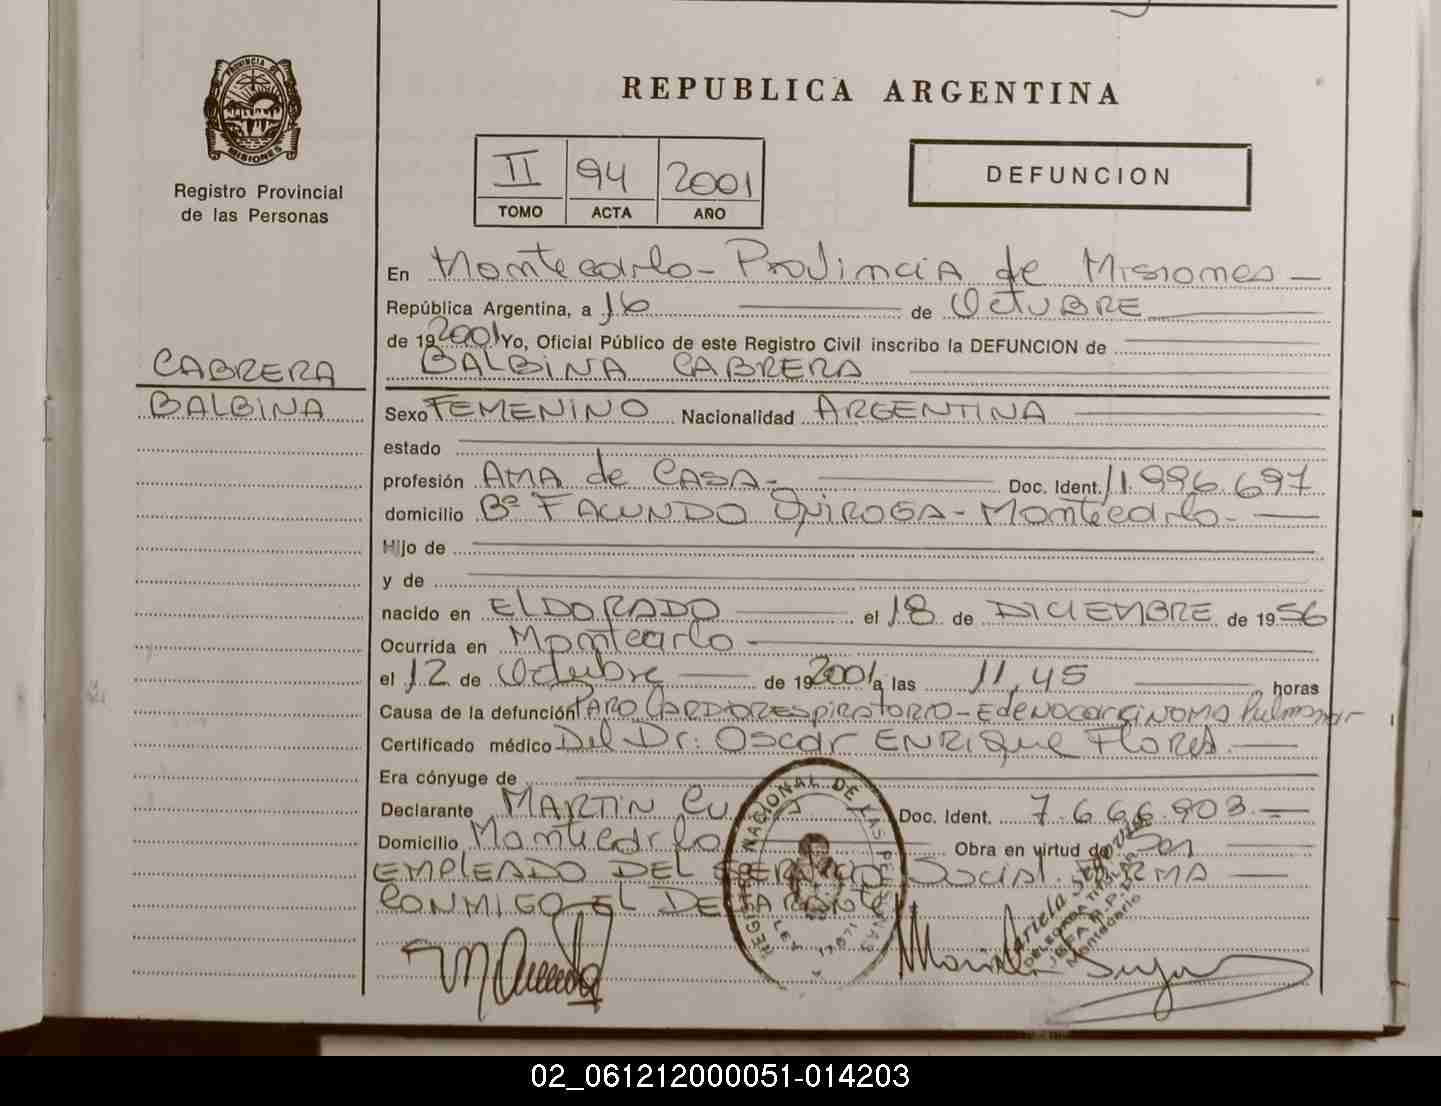 PROVINCIA DE
MISIONES
Registro Provincial
de las Personas
REPUBLICA ARGENTINA
II 94 2001
TOMO ACTA AÑO
DEFUNCION
En Montecarlo - Provincia de Misiones -
República Argentina, a 16 de Octubre
de 19 2001 Yo, Oficial Público de este Registro Civil inscribo la DEFUNCION de
BALBINA CABRERA
CABRERA
BALBINA
Sexo FEMENINO Nacionalidad ARGENTINA
estado
profesión AMA de CASA - Doc. Ident. 11.996.697
domicilio Bº FACUNDO QUIROGA - Montecarlo -
Hijo de
y de
nacido en ELDORADO el 18 de DICIEMBRE de 1956
Ocurrida en Montecarlo
el 12 de Octubre de 19 2001 a las 11,45 horas
Causa de la defunción PARO CARDIORESPIRATORIO - EdeNOCarcINOMA Pulmonar
Certificado médico Del Dr: Oscar ENRIQue Flores
Era cónyuge de
Declarante MARTIN Doc. Ident. 7.666.903 -
Domicilio Montecarlo Obra en virtud de Ser
EMPLEADO DEL SERVICIO Social. FIRMA
CONMIGO EL DECLARANTE
REGISTRO NACIONAL DE LAS PERSONAS
LEY 17.671
Mariela
DELEGADA TITULAR
Montecarlo
02_061212000051-014203